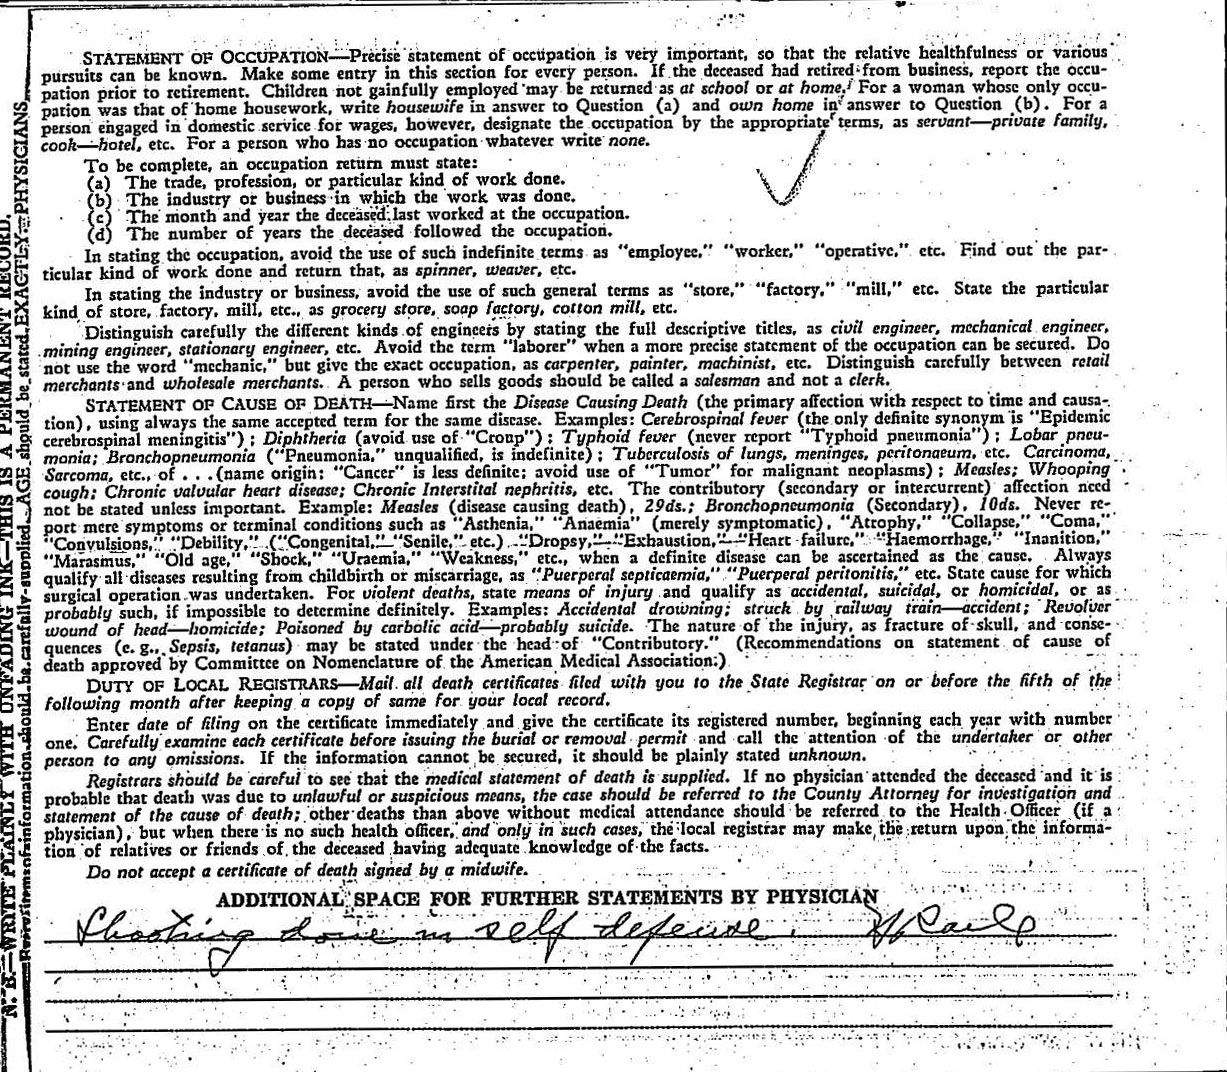 STATEMENT OF OCCUPATION—Precise statement of occupation is very important, so that the relative healthfulness or various
pursuits can be known. Make some entry in this section for every person. If the deceased had retired from business, report the occu-
pation prior to retirement. Children not gainfully employed may be returned as at school or at home. For a woman whose only occu-
pation was that of home housework, write housewife in answer to Question (a) and own home in answer to Question (b). For a
person engaged in domestic service for wages, however, designate the occupation by the appropriate terms, as servant—private family,
cook—hotel, etc. For a person who has no occupation whatever write none.
To be complete, an occupation return must state:
(a) The trade, profession, or particular kind of work done.
(b) The industry or business in which the work was done.
(c) The month and year the deceased last worked at the occupation.
(d) The number of years the deceased followed the occupation.
In stating the occupation, avoid the use of such indefinite terms as "employee," "worker," "operative," etc. Find out the par-
ticular kind of work done and return that, as spinner, weaver, etc.
In stating the industry or business, avoid the use of such general terms as "store," "factory," "mill," etc. State the particular
kind of store, factory, mill, etc., as grocery store, soap factory, cotton mill, etc.
Distinguish carefully the different kinds of engineers by stating the full descriptive titles, as civil engineer, mechanical engineer,
mining engineer, stationary engineer, etc. Avoid the term "laborer" when a more precise statement of the occupation can be secured. Do
not use the word "mechanic," but give the exact occupation, as carpenter, painter, machinist, etc. Distinguish carefully between retail
merchants and wholesale merchants. A person who sells goods should be called a salesman and not a clerk.
STATEMENT OF CAUSE OF DEATH—Name first the Disease Causing Death (the primary affection with respect to time and causa-
tion), using always the same accepted term for the same disease. Examples: Cerebrospinal fever (the only definite synonym is "Epidemic
cerebrospinal meningitis"); Diphtheria (avoid use of "Croup"); Typhoid fever (never report "Typhoid pneumonia"); Lobar pneu-
monia; Bronchopneumonia ("Pneumonia," unqualified, is indefinite); Tuberculosis of lungs, meninges, peritonaeum, etc. Carcinoma,
Sarcoma, etc., of . . . (name origin; "Cancer" is less definite; avoid use of "Tumor" for malignant neoplasms); Measles; Whooping
cough; Chronic valvular heart disease; Chronic Interstital nephritis, etc. The contributory (secondary or intercurrent) affection need
not be stated unless important. Example: Measles (disease causing death), 29ds.; Bronchopneumonia (Secondary), 10ds. Never re-
port mere symptoms or terminal conditions such as "Asthenia," "Anaemia" (merely symptomatic), "Atrophy," "Collapse," "Coma,"
"Convulsions," "Debility," ("Congenital," "Senile," etc.) "Dropsy," "Exhaustion," "Heart failure," "Haemorrhage," "Inanition,"
"Marasmus," "Old age," "Shock," "Uraemia," "Weakness," etc., when a definite disease can be ascertained as the cause. Always
qualify all diseases resulting from childbirth or miscarriage, as "Puerperal septicaemia," "Puerperal peritonitis," etc. State cause for which
surgical operation was undertaken. For violent deaths, state means of injury and qualify as accidental, suicidal, or homicidal, or as
probably such, if impossible to determine definitely. Examples: Accidental drowning; struck by railway train—accident; Revolver
wound of head—homicide; Poisoned by carbolic acid—probably suicide. The nature of the injury, as fracture of skull, and conse-
quences (e. g., Sepsis, tetanus) may be stated under the head of "Contributory." (Recommendations on statement of cause of
death approved by Committee on Nomenclature of the American Medical Association.)
DUTY OF LOCAL REGISTRARS—Mail all death certificates filed with you to the State Registrar on or before the fifth of the
following month after keeping a copy of same for your local record.
Enter date of filing on the certificate immediately and give the certificate its registered number, beginning each year with number
one. Carefully examine each certificate before issuing the burial or removal permit and call the attention of the undertaker or other
person to any omissions. If the information cannot be secured, it should be plainly stated unknown.
Registrars should be careful to see that the medical statement of death is supplied. If no physician attended the deceased and it is
probable that death was due to unlawful or suspicious means, the case should be referred to the County Attorney for investigation and
statement of the cause of death; other deaths than above without medical attendance should be referred to the Health Officer (if a
physician), but when there is no such health officer, and only in such cases, the local registrar may make the return upon the informa-
tion of relatives or friends of the deceased having adequate knowledge of the facts.
Do not accept a certificate of death signed by a midwife.
ADDITIONAL SPACE FOR FURTHER STATEMENTS BY PHYSICIAN
Shooting done in self defense.
N. B.—WRITE PLAINLY WITH UNFADING INK—THIS IS A PERMANENT RECORD.
Every item of information should be carefully supplied. AGE should be stated EXACTLY. PHYSICIANS